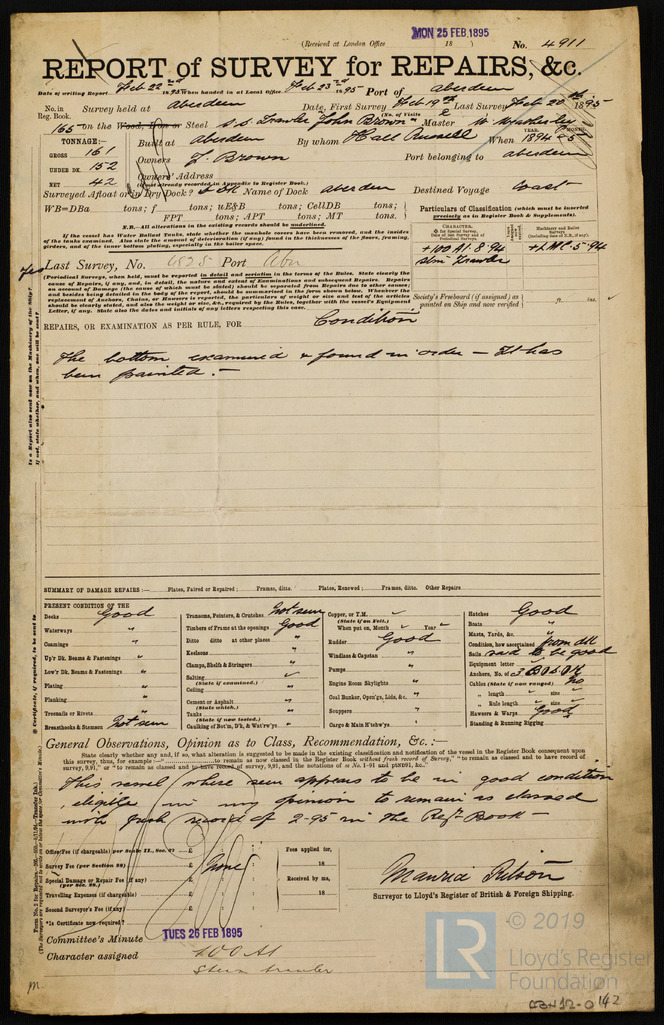 (Received at London Office MON 25 FEB. 1895 18 ) No. 4911
REPORT of SURVEY for REPAIRS, &c.
Date of writing Report Feb 22nd 1895 When handed in at Local Office Feb 23rd 1895 Port of Aberdeen
No. in Reg. Book. Survey held at Aberdeen Date, First Survey Feb 19th Last Survey Feb 20th 1895
(No. of Visits 2
165 on the Wood, Iron or Steel S.S. Trawler "John Brown" Master W. Weatherley
TONNAGE:— Built at Aberdeen By whom Hall Russell When 1894 - 5
YEAR. MONTH.
GROSS 161 Owners J. Brown Port belonging to Aberdeen
UNDER DK. 152 Owners' Address
NET 42 (if not already recorded in Appendix to Register Book.)
Surveyed Afloat or in Dry Dock? Name of Dock Aberdeen Destined Voyage Coast
WB=DBa tons; f uE&B tons; CellDB tons;
FPT tons; APT tons; MT tons.
Particulars of Classification (which must be inserted precisely as in Register Book & Supplements).
N.B.—All alterations in the existing records should be underlined.
If the vessel has Water Ballast Tanks, state whether the manhole covers have been removed, and the insides
of the tanks examined. Also state the amount of deterioration (if any) found in the thicknesses of the floors, framing,
girders, and of the inner bottom plating, especially in the boiler space.
CHARACTER.
+100 A1. 8.94
Stm Trawler
+LMC. 5.94
Last Survey, No. 4825 Port Abn
(Periodical Surveys, when held, must be reported in detail and seriatim in the terms of the Rules. State clearly the
cause of Repairs, if any, and, in detail, the nature and extent of Examinations and subsequent Repairs. Repairs
on account of Damage (the cause of which must be stated) should be separated from Repairs due to other causes;
and besides being detailed in the body of the report, should be summarised in the form shown below. Whenever the
replacement of Anchors, Chains, or Hawsers is reported, the particulars of weight or size and test of the articles
should be clearly stated, and also the weight or size, &c., required by the Rules, together with the vessel's Equipment
Letter, if any. State also the dates and initials of any letters respecting this case.
Society's Freeboard (if assigned) as painted on Ship and now verified } ft. ins.
REPAIRS, OR EXAMINATION AS PER RULE, FOR Condition
The bottom examined & found in order — It has
been painted. —
SUMMARY OF DAMAGE REPAIRS:— Plates, Faired or Repaired; Frames, ditto. Plates, Renewed; Frames, ditto. Other Repairs
PRESENT CONDITION OF THE
Decks Good
Waterways "
Coamings "
Up'r Dk. Beams & Fastenings "
Low'r Dk. Beams & Fastenings "
Plating "
Planking "
Treenails or Rivets "
Breasthooks & Stemson Not seen
Transoms, Pointers, & Crutches Not seen
Timbers of Frame at the openings Good
Ditto ditto at other places "
Keelsons "
Clamps, Shelfs & Stringers "
Salting "
(State if examined.)
Ceiling "
Cement or Asphalt "
(State which.)
Tanks "
(State if now tested.)
Caulking of Bot'm, D'k, & Wat'rw'ys "
Copper, or Y.M.
(State if on Felt.)
When put on, Month Year
Rudder Good
Windlass & Capstan "
Pumps "
Engine Room Skylights "
Coal Bunker, Open'gs, Lids, &c. "
Scuppers "
Cargo & Main H'tchw'ys "
Hatches Good
Boats "
Masts, Yards, &c. "
Condition, how ascertained from dk
Sails said to be good
Equipment letter
Anchors, No. of 3
Cables (State if now ranged) No
" length size
" Rule length size
Hawsers & Warps Good
Standing & Running Rigging "
General Observations, Opinion as to Class, Recommendation, &c.:—
State clearly whether any and, if so, what alteration is suggested to be made in the existing classification and notification of the vessel in the Register Book consequent upon
this survey, thus, for example:— " to remain as now classed in the Register Book without fresh record of Survey," "to remain as classed and to have record of
survey, 9,91," or "to remain as classed and to have record of survey, 9,91, and the notations of
This vessel (where seen) appears to be in good condition
, eligible in my opinion to remain as classed
with fresh record of 2-95 in the Regr Book —
Office Fee (if chargeable) per Scale II., Sec. 27 £
Survey Fee (per Section 28) £ None
Special Damage or Repair Fee (if any) £
(per Sec. 28.)
Travelling Expenses (if chargeable) £
Second Surveyor's Fee (if any) £
Fees applied for, 18
Received by me, 18
Surveyor to Lloyd's Register of British & Foreign Shipping.
*Is Certificate now required?
Committee's Minute TUES 26 FEB 1895
Character assigned 100 A1
Stern trawler
LR © 2019
Lloyd's Register
Foundation
ABN 12-0142